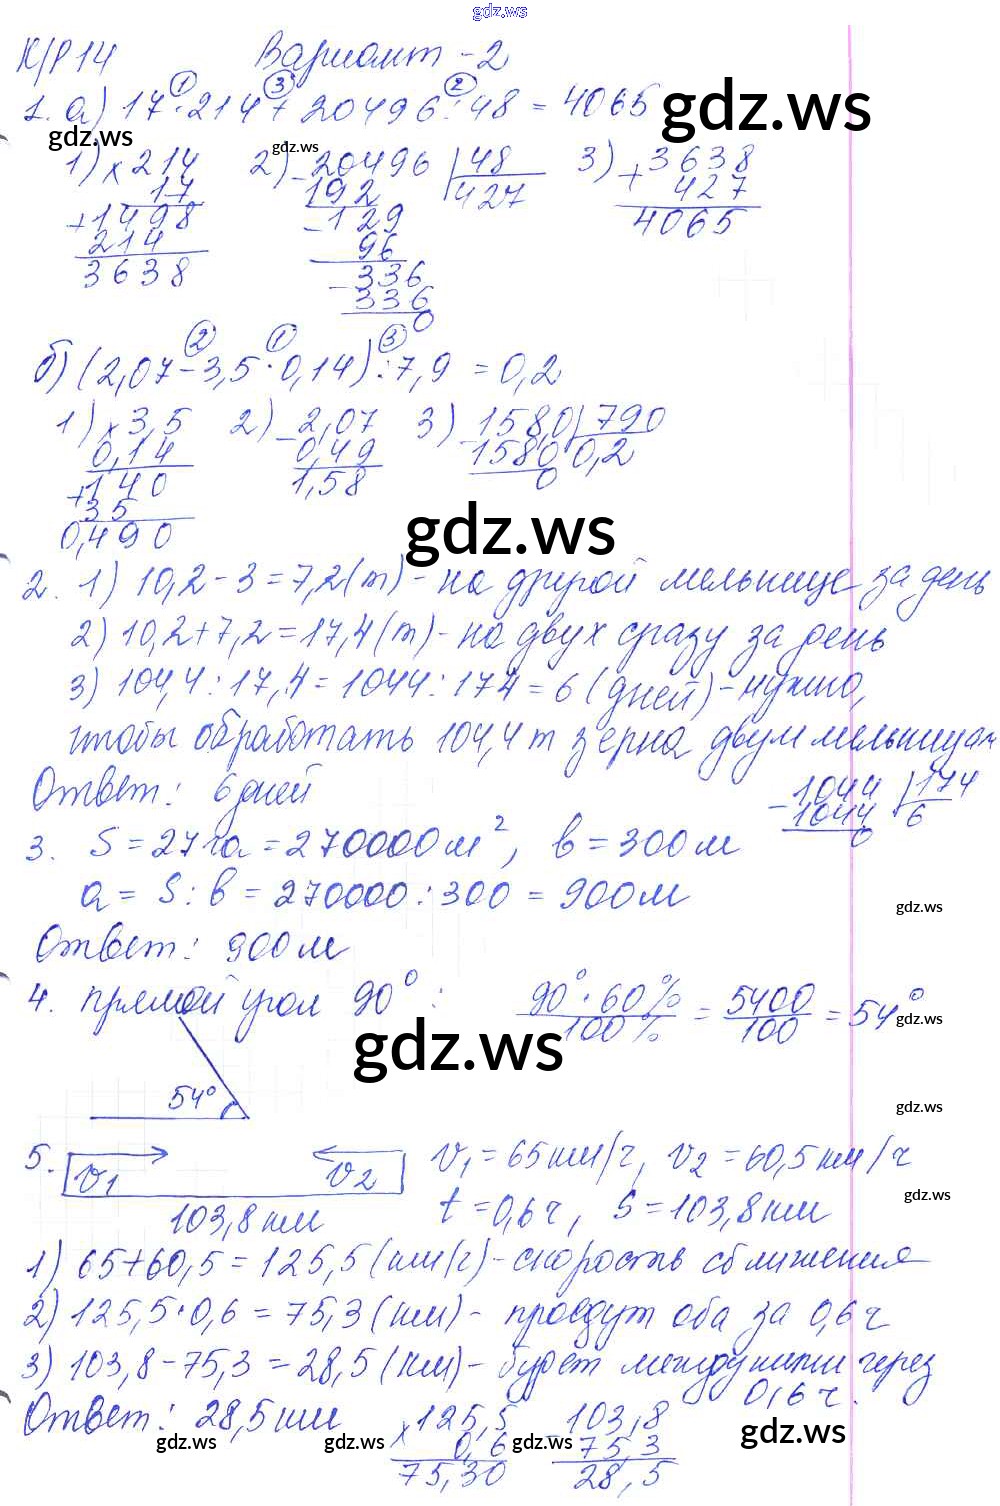 gdz.ws
К/Р 14 Вариант - 2
① ③ ②
1. а) 17 · 214 + 20496 : 48 = 4065
gdz.ws gdz.ws gdz.ws
1) × 214 2) - 20496 | 48 3) + 3638
17 192 427 427
+ 1498 - 129 4065
214 96
3638 - 336
336
0
② ① ③
б) (2,07 - 3,5 · 0,14) : 7,9 = 0,2
1) × 3,5 2) - 2,07 3) - 158,0 | 790
0,14 0,49 1580 0,2
+ 140 1,58 0
35
0,490
gdz.ws
2. 1) 10,2 - 3 = 7,2 (т) - на другой мельнице за день
2) 10,2 + 7,2 = 17,4 (т) - на двух сразу за день
3) 104,4 : 17,4 = 1044 : 174 = 6 (дней) - нужно,
чтобы обработать 104,4 т зерна двум мельницам
Ответ: 6 дней
- 1044 | 174
1044 6
0
3. S = 27 га = 270000 м², b = 300 м
a = S : b = 270000 : 300 = 900 м
gdz.ws
Ответ: 900 м
4. прямой угол 90° : 90° · 60% / 100% = 5400 / 100 = 54°
gdz.ws gdz.ws
54°
gdz.ws
5. v₁ v₂ v₁ = 65 км/ч, v₂ = 60,5 км/ч
gdz.ws
103,8 км t = 0,6 ч, S = 103,8 км
1) 65 + 60,5 = 125,5 (км/ч) - скорость сближения
2) 125,5 · 0,6 = 75,3 (км) - проедут оба за 0,6 ч
3) 103,8 - 75,3 = 28,5 (км) - будет между ними через
0,6 ч.
Ответ: 28,5 км
× 125,5 - 103,8
0,6 75,3
75,30 28,5
gdz.ws gdz.ws gdz.ws gdz.ws